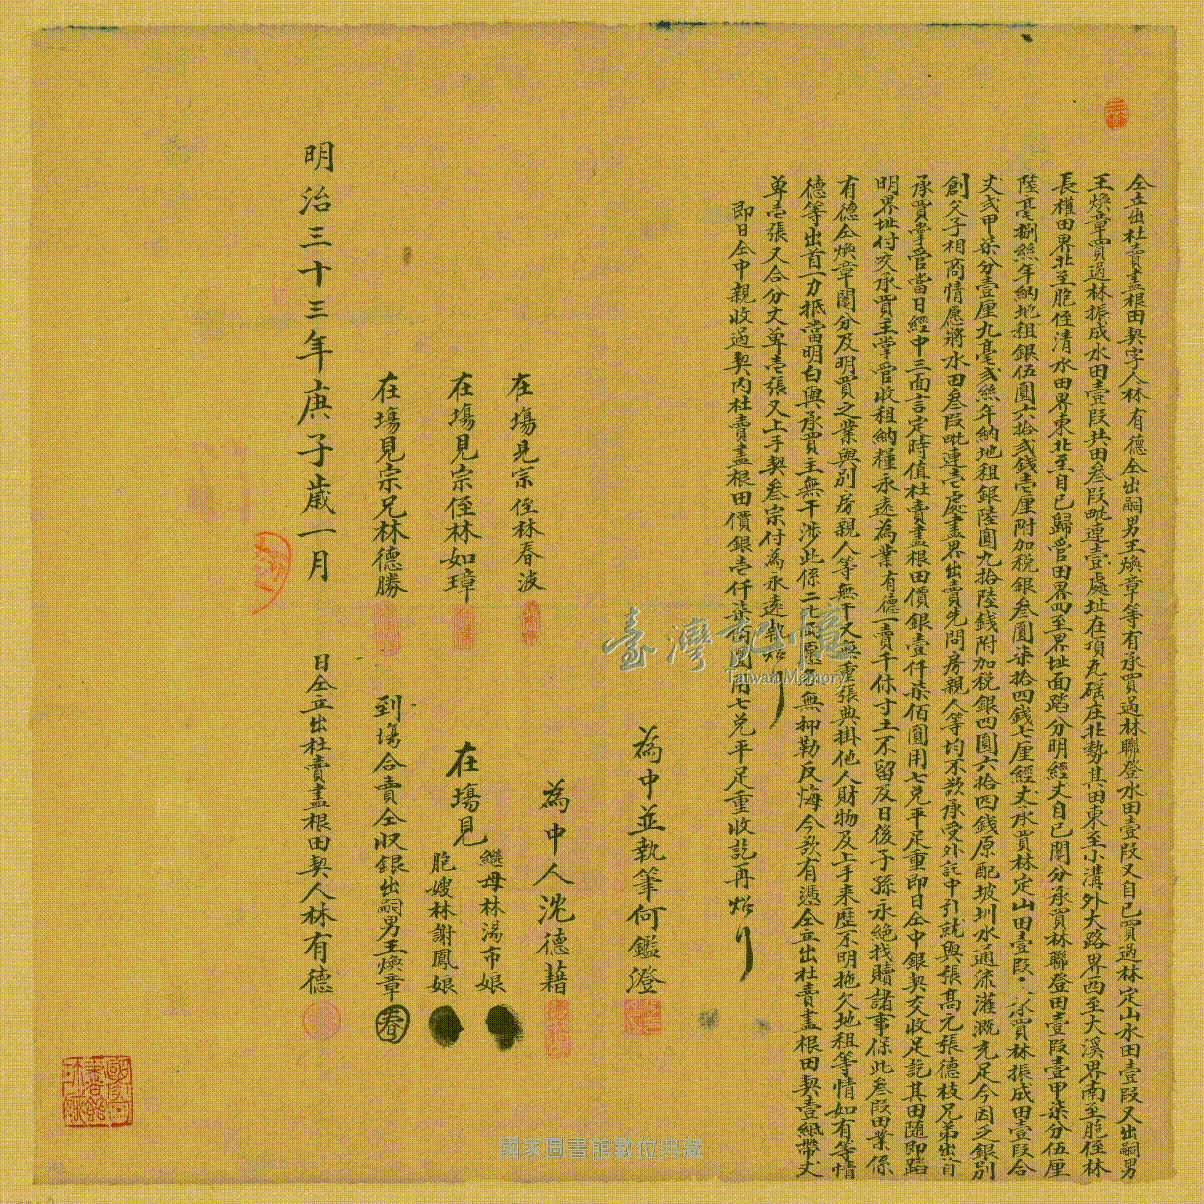 仝立出杜賣盡根田契字人林有德仝出嗣男王煥章等有承買過林聯登水田壹段又自己買過林定山水田壹段又出嗣男
王煥章買過林振成水田壹段共田叁段毗連壹處址在項瓦磘庄北勢其田東至小溝外大路界西至大溪界南至胞侄林
長權田界北至胞侄清水田界東北至自己歸管田界四至界址面踏分明經丈自己鬮分承買林聯登田壹段壹甲柒分伍厘
陸毫捌絲年納地租銀伍圓六拾弍錢壱厘附加稅銀叁圓柒拾四錢七厘經丈承買林定山田壹段承買林振成田壹段合
丈弍甲柒分壹厘九毫弍絲年納地租銀陸圓九拾陸錢附加稅銀四圓六拾四錢原配坡圳水通流灌溉充足今因乏銀別
創父子相商情愿將水田叁段毗連壱處盡界出賣先問房親人等均不欲承受外託中引就與張髙元張德枝兄弟出首
承買掌管當日經中三面言定時值杜賣盡根田價銀壹仟柒佰圓用七兌平足重即日仝中銀契交收足訖其田隨即踏
明界址付交承買主掌管收租納糧永遠為業有德一賣千休寸土不留及日後子孫永絕找贖諸事保此叁段田業係
有德仝煥章鬮分及明買之業與別房親人等無干又無重張典掛他人財物及上手來歷不明拖欠地租等情如有等情
德等出首一力抵當明白與承買主無干涉此係二比甘愿各無抑勒反悔今欲有憑仝立出杜賣盡根田契壹紙帶丈
单壱張又合分丈单壱張又上手契叁宗付為永遠執炤
即日仝中親收過契內杜賣盡根田價銀壱仟柒佰圓用七兌平足重收訖再炤
為中並執筆何鑑澄
為中人沈德藉
在塲見宗侄林春波
在塲見
繼母林湯市娘
胞嫂林謝鳳娘
在塲見宗侄林如璋
在塲見宗兄林德勝
到塲合賣仝收銀出嗣男王煥章
春
明治三十三年庚子歲一月
日仝立出杜賣盡根田契人林有德
臺灣記憶
Taiwan Memory
國家圖書館數位典藏